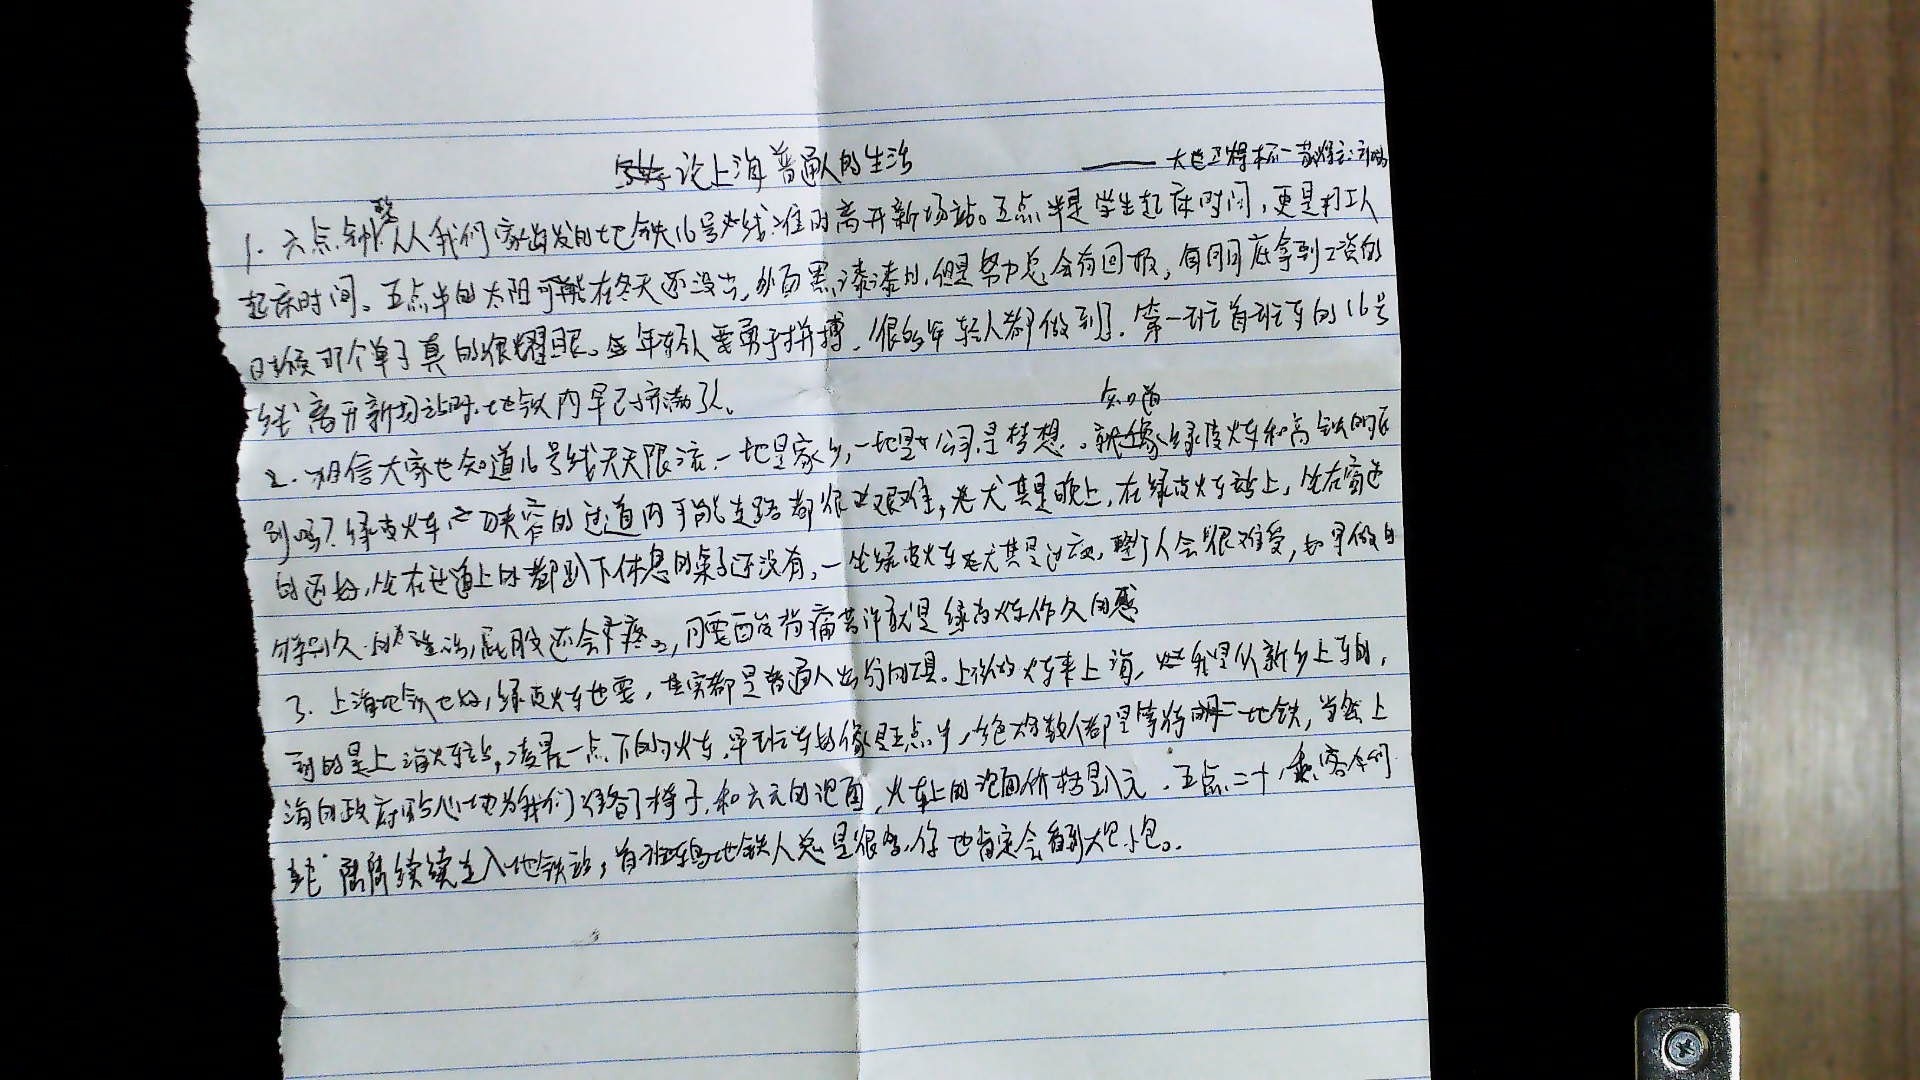 论上海普通人的生活
1. 六点钟整 从我们家出发的地铁16号线准时离开新场站。五点半是学生起床时间，更是打工人
起床时间。五点半的太阳可能在冬天还没出，外面黑漆漆的，但是努力总会有回报，每月月底拿到工资的
时候那个单子真的很耀眼。年轻人要勇于拼搏，很多年轻人都做到了。第一班首班车的16号
线离开新场站时，地铁内早已挤满了人。
2. 相信大家也知道16号线天天限流，一地是家乡，一地是公司是梦想。知道绿皮火车和高铁的区
别吗？绿皮火车狭窄的过道内可能走路都很艰难，尤其是晚上，在绿皮火车上，坐在窗边
的还好，坐在过道上的都趴下休息的桌子还没有，一坐绿皮火车尤其是过夜，整个人会很难受，如果做的
特别久的话，屁股还会疼，腰酸背痛也许就是绿皮火车作久的感
3. 上海地铁也好，绿皮火车也罢，其实都是普通人出行的工具。上次做火车来上海，我是从新乡上车的，
到的是上海火车站，凌晨一点下的火车，早班车好像是五点半，绝大多数人都是等待地铁，当然上
海的政府贴心地为我们准备了椅子，和六元的泡面，火车上的泡面价格是八元。五点二十，乘客们
陆陆续续走入地铁站，首班车的地铁人总是很多，你也肯定会看到大包小包。